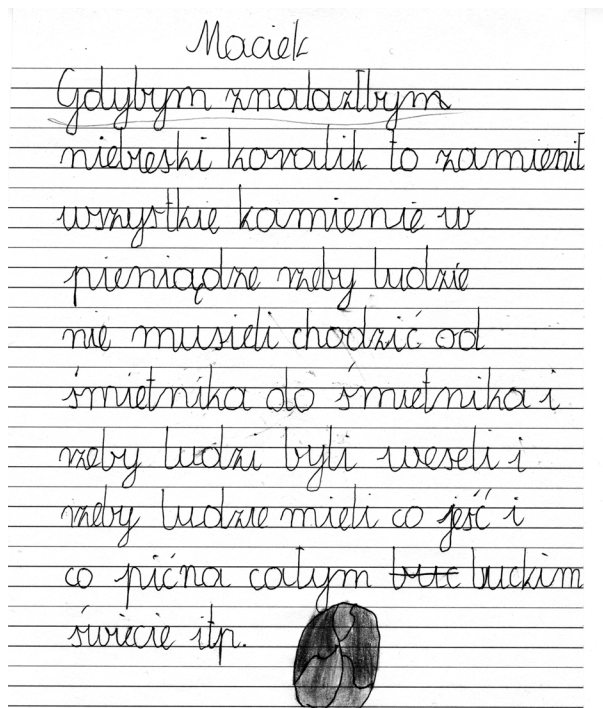 Maciek
Gdybym znalazłbym
niebieski koralik to zamienił
wszystkie kamienie w
pieniądze rzeby ludzie
nie musieli chodzić od
śmietnika do śmietnika i
rzeby ludzi byli weseli i
rzeby ludzie mieli co jeść i
co pić na całym luckim
świecie itp.